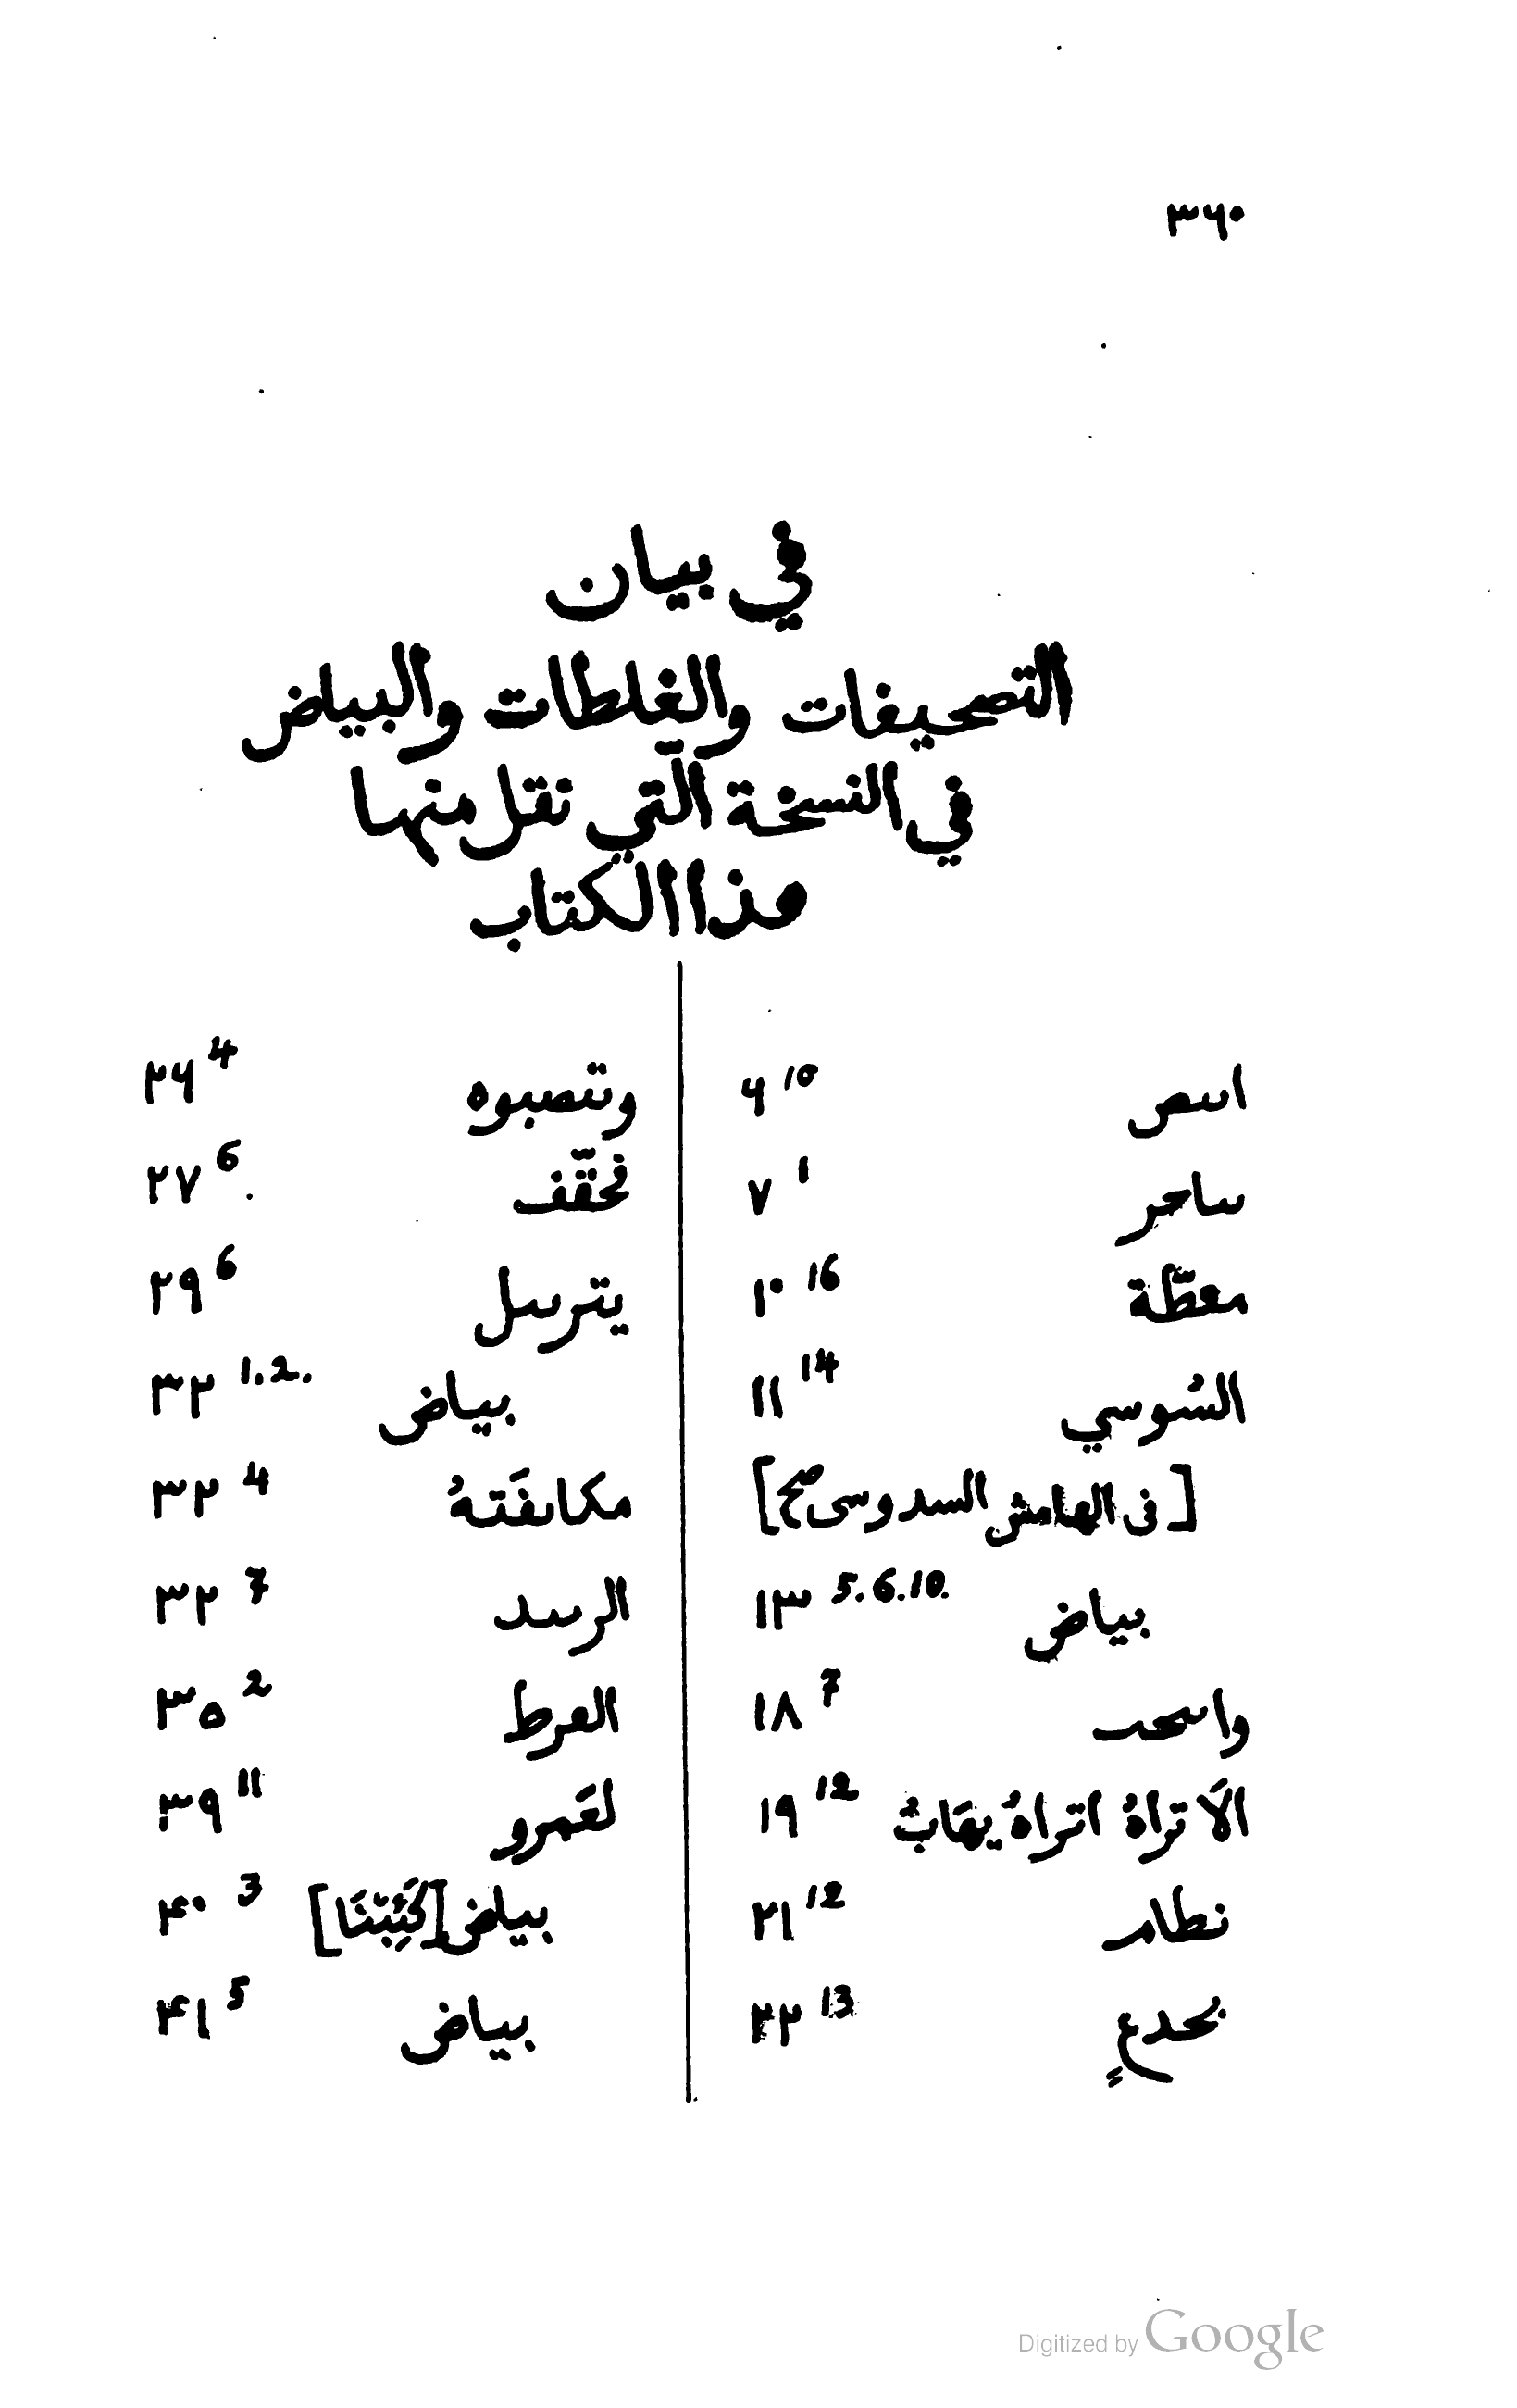 ٣٦٠
في بيان
التصحيفات والغلطات والبياض
في النسخة التي نقل منها
هذا الكتاب
اسص ٦ 10
ساحر ٧ 1
معطّة ١٠ 16
السُوسي ١١ 14
[فى الهامش السدوسى صح]
بياض ١٣ 5.6.10.
١٨ 7
الاَ تراهُ اتراهُ يهَابُ ١٩ 12
نطار ٢١ 12
بحدعٍ ٢٢ 13
وتنصبوه ٢٦ 4
٢٧ 6
يترسل ٢٩ 6
بياض ٣٢ 1.2.
مكاىفَتهُ ٣٢ 4
الرسد ٣٢ 7
العرط ٣٥ 2
لعَمرو ٣٩ 11
بياض ٤٠ 3
بياض ٤١ 5
Digitized by Google